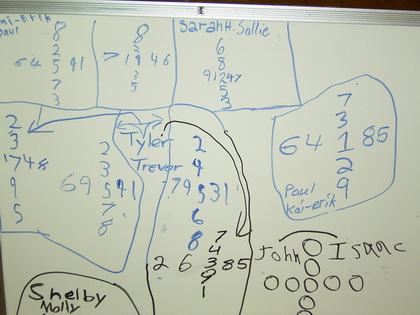 ai-Erik
Paul
8
2
64 5 91
7
3
8
2
7 1 9 46
3
5
Sarah H. Sallie
6
8
91247
5
3
7
3
64 1 85
2
9
Paul
Kai-erik
2
3
1748
9
5
2
3
69 5 41
7
8
Tyler
Trevor
2
4
79531
6
8
7
4
2 6 3 85
9
1
John
Isaac
Shelby
Molly